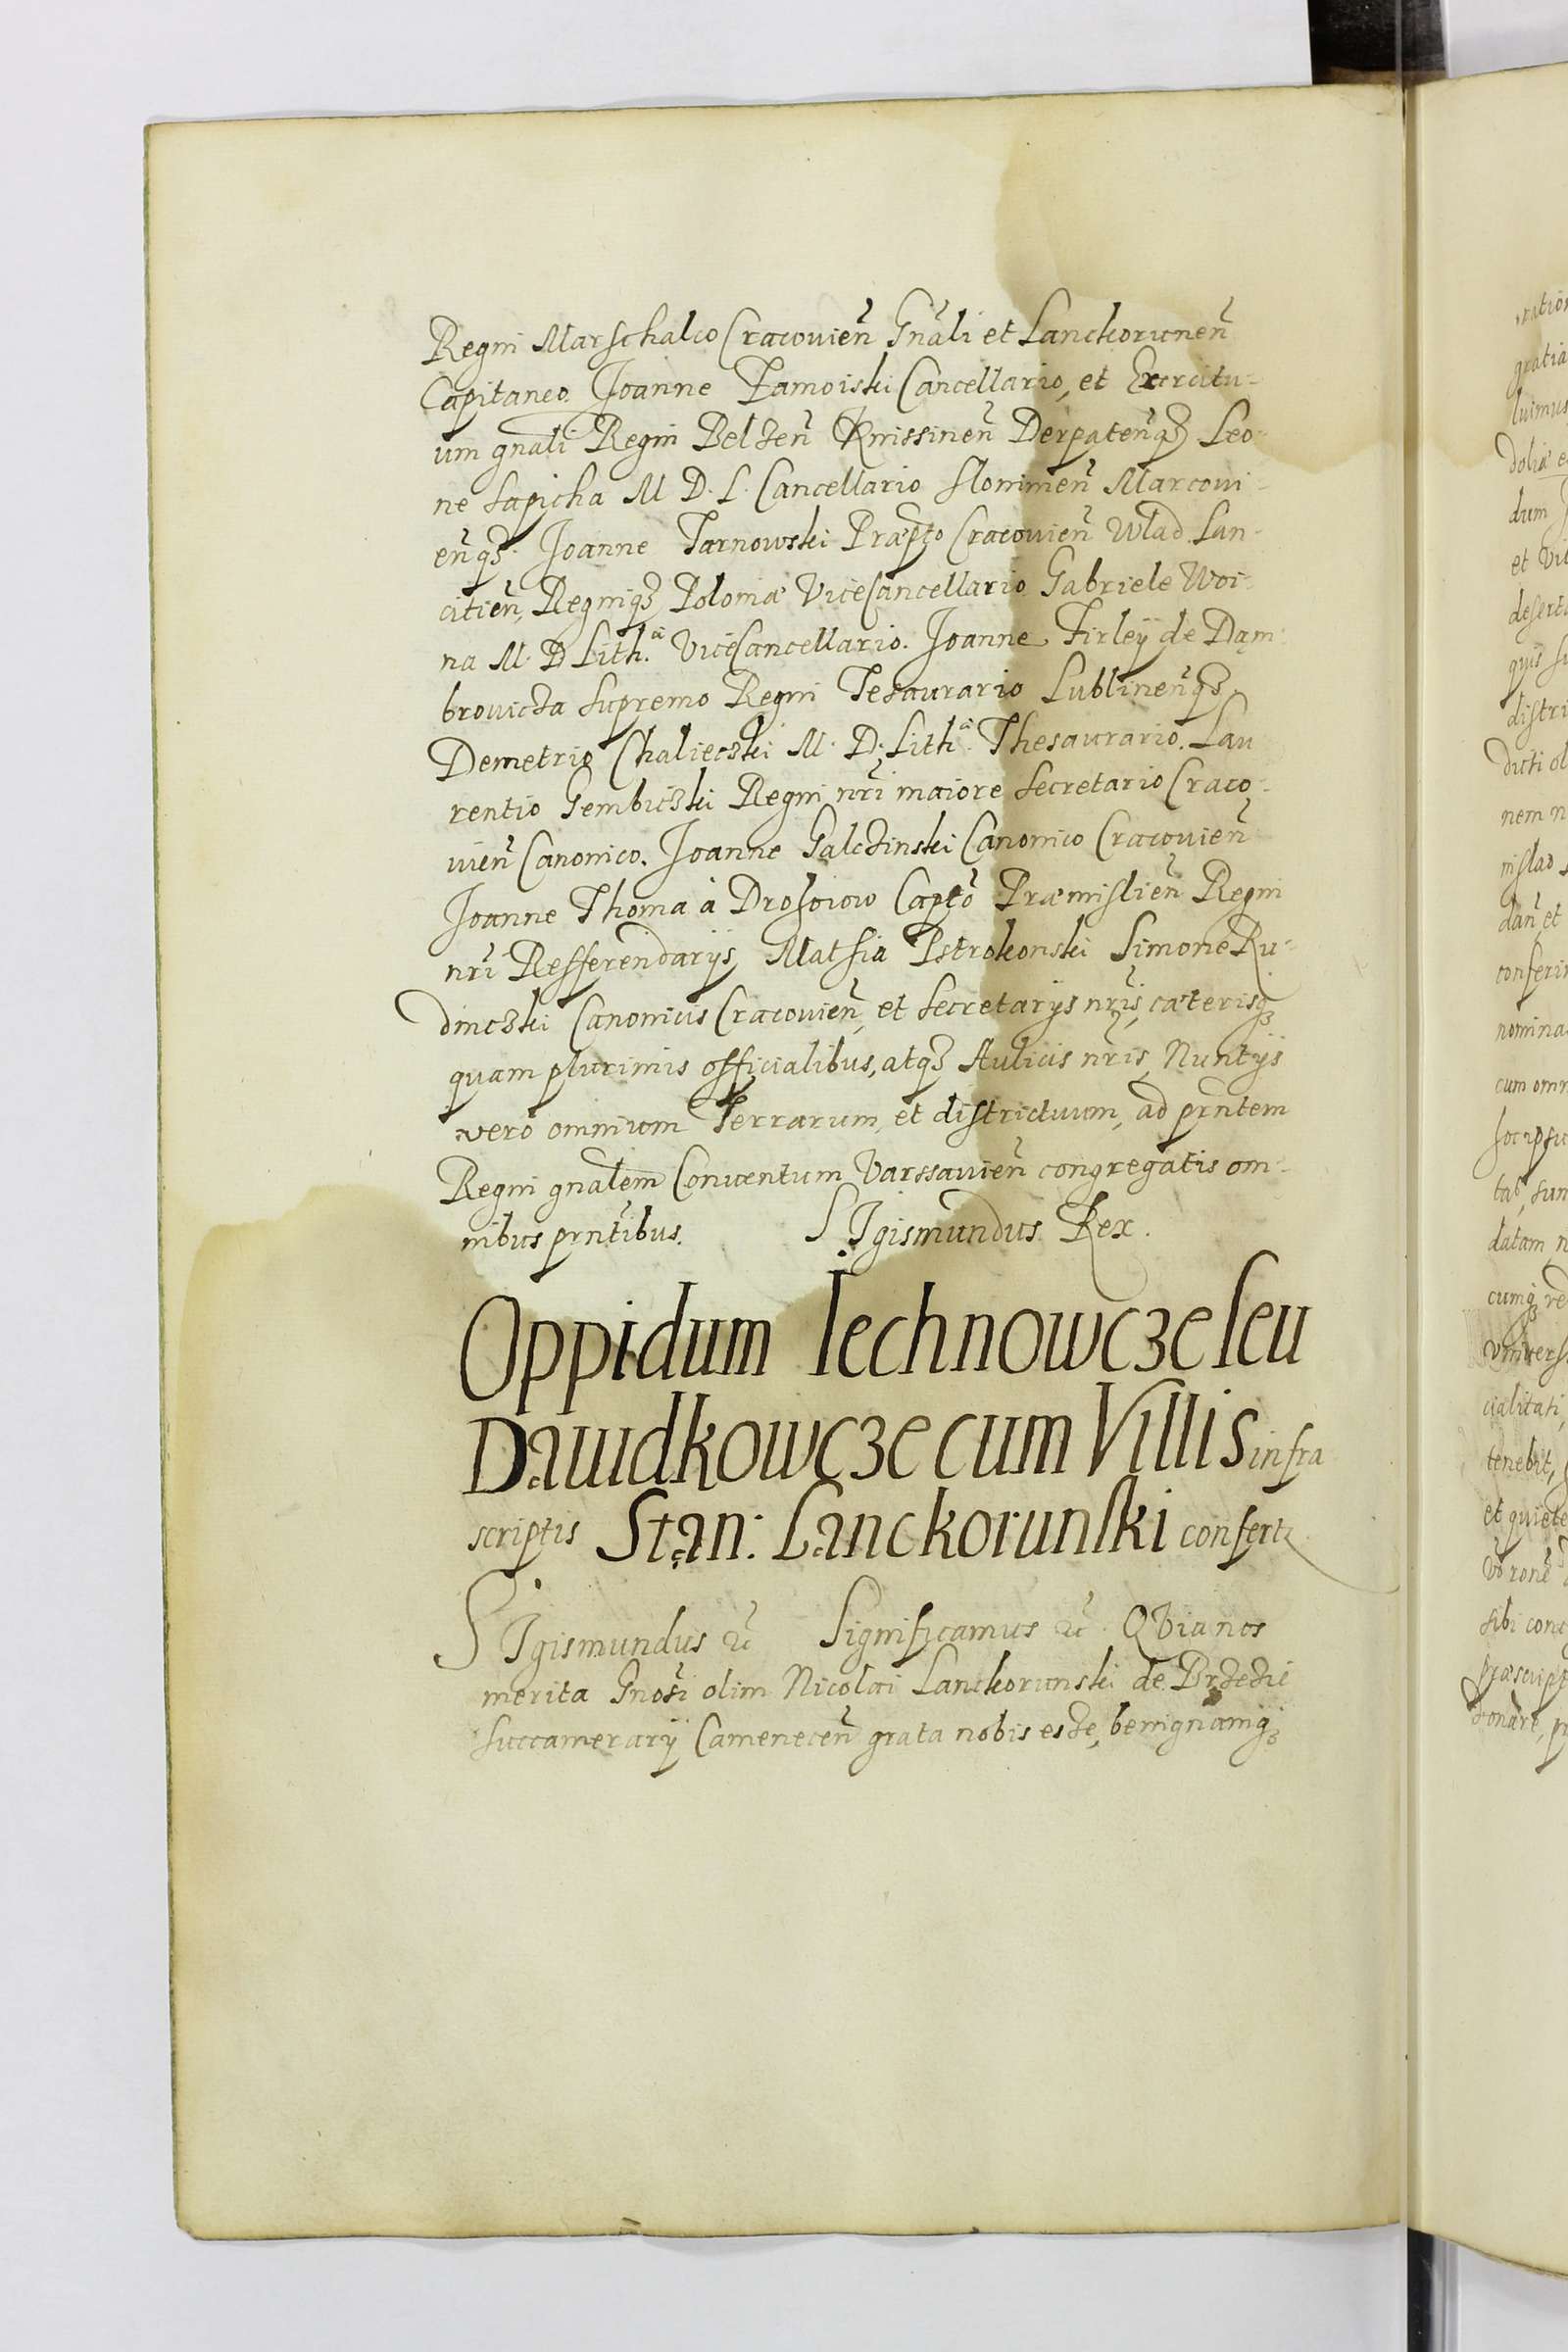 Regni Marschalco Cracovień Gnāli et Lanckorunēn
Capitaneo. Joanne Zamoiski Cancellario, et Exercitu-
um gnāli Regni Belzeñ Knissineñ Derpateñq3 Leo-
ne Sapieha M. D. L. Cancellario Slonimeñ Marcovi-
eñq3. Joanne Tarnowski Præpto Cracovieñ Wlad. Lan-
citieñ, Regniq3 Poloniæ ViceCancellario. Gabriele Woi-
na M. D Lith.æ ViceCancellario. Joanne Firleÿ de Dam
brovicza Supremo Regni Tesaurario Lublineñq3
Demetrio Chalieczki M. D. Lith.æ Thesaurario. Lau
rentio Gembiczki Regni nr̄i maiore Secretario Craco-
vieñ Canonico. Joanne Galczinski Canonico Cracovieñ
Joanne Thoma à Drohoiow Captō Præmislieñ Regni
nr̄i Refferendarijs, Mathia Pstrokonski Simone Ru-
dniczki Canonicis Cracovieñ, et Secretarijs nr̄is, cæterisq3
quam plurimis officialibus, atq3 Aulicis nr̄is, Nuntijs
vero omnium Terrarum, et districtuum, ad prn̄tem
Regni gnālem Conventum Varssavieñ congregatis om-
nibus prn̄tibus. SIgismundus Rex.
Oppidum Iechnowcze seu
Dawidkowcze cum Villis infra
scriptis Stan: Lanckorunski confert
SIgismundus &c̄ Significamus &c̄ QVia nos
merita Gnōsi olim Nicolai Lanckorunski de Brzezie
Succamerarij Cameneceñ grata nobis esse, benignamq3